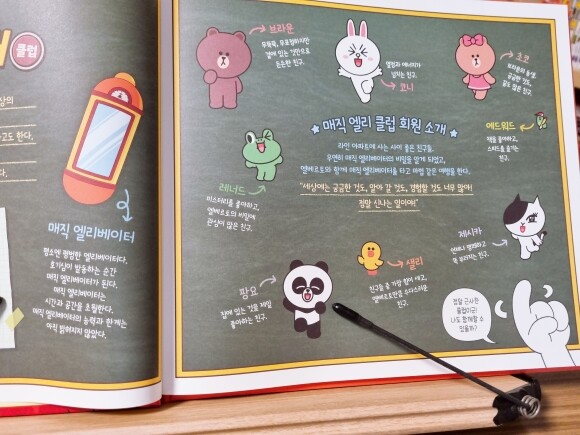 클럽
상의
고도 한다.
다.
매직 엘리베이터
평소엔 평범한 엘리베이터다.
호기심이 발동하는 순간
매직 엘리베이터가 된다.
매직 엘리베이터는
시간과 공간을 초월한다.
매직 엘리베이터의 능력과 한계는
아직 밝혀지지 않았다.
브라운
무뚝뚝, 무표정하지만
곁에 있는 것만으로
든든한 친구.
열정과 에너지가
넘치는 친구.
코니
초코
브라운의 동생.
궁금한 것도,
꿈도 많은 친구.
매직 엘리 클럽 회원 소개
라인 아파트에 사는 사이 좋은 친구들.
우연히 매직 엘리베이터의 비밀을 알게 되었고,
엘베르토와 함께 매직 엘리베이터를 타고 마법 같은 여행을 한다.
"세상에는 궁금한 것도, 알아 갈 것도, 경험할 것도 너무 많아!
정말 신나는 일이야!"
에드워드
책을 좋아하고,
스피드를 즐기는
친구.
레너드
미스터리를 좋아하고,
엘베르토의 비밀에
관심이 많은 친구.
제시카
언제나 발랄하고
똑 부러지는 친구.
샐리
친구들 중 가장 힘이 세고,
엘베르토만큼 수다스러운
친구.
팡요
집에 있는 것을 제일
좋아하는 친구.
정말 근사한
클럽이군!
나도 함께할 수
있을까?